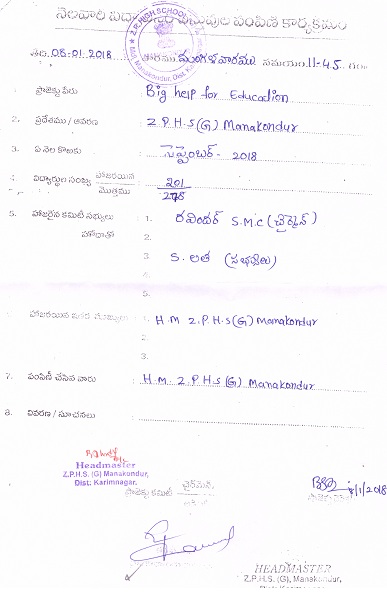 నెలవారి విద్యా వస్తువుల పంపిణీ కార్యక్రమం
Z.P. HIGH SCHOOL
తేది. 08.01.2018 వారము మంగళవారము సమయం 11-45
ప్రాజెక్టు పేరు Big help for Education
2. ప్రదేశము / ఆవరణ : Z.P.H.S(G) Manakondur
3. ఏ నెల కొఱకు : సెప్టెంబర్ - 2018
4. విద్యార్థుల సంఖ్య హాజరయిన / మొత్తము : 201 /
5. హాజరైన కమిటీ సభ్యులు 1. రవిందర్ S.M.C (ఛైర్మెన్)
హోదాతో 2.
3. S. లత (సభ్యులు)
4.
5.
హాజరయిన ఇతర 1. H.M Z.P.H.S(G) Manakondur
2.
3.
7. పంపిణీ చేసిన వారు : H.M. Z.P.H.S (G) Manakondur
8. వివరణ / సూచనలు :
Headmaster
Z.P.H.S. (G) Manakondur,
Dist: Karimnagar.
ప్రాజెక్టు కమిటీ ఛైర్మెన్
8/1/2018
HEADMASTER
Z.P.H.S. (G), Manakondur,
Dist. Karimnagar.